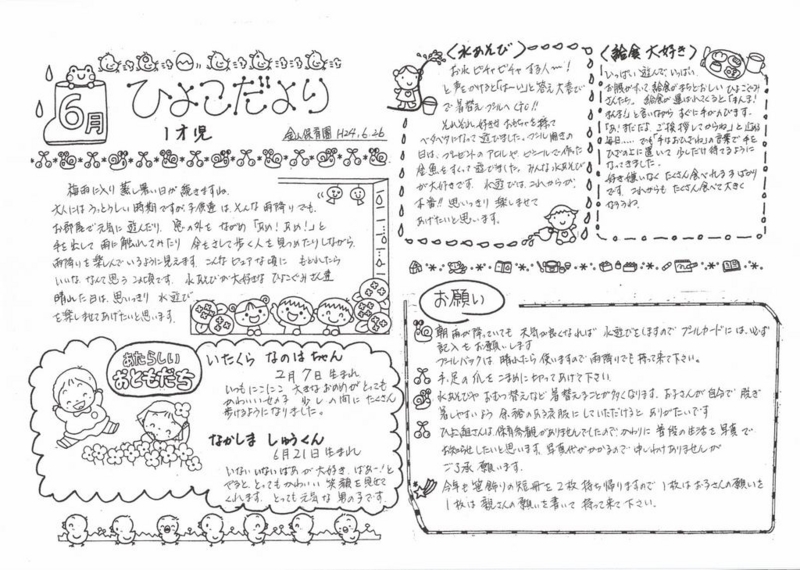 6月
ひよこだより
1才児
金山保育園 H24.6.26
梅雨に入り蒸し暑い日が続きますね。
大人にはうっとうしい時期ですが子供達は、そんな雨降りでも、
お部屋で元気に遊んだり、窓の外をながめ「あめ!あめ!」と
手を出して雨に触れてみたり 傘をさして歩く人を見つめたりしながら、
雨降りを楽しんでいるように見えます。こんなピュアな頃に もどれたら
いいな、なんて思う この頃です。水あそびが大好きな ひよこぐみさん達
晴れた日は、思いっきり 水遊び
を楽しませてあげたいと思います。
あたらしい
おともだち
いたくら なのはちゃん
2月7日生まれ
いつもにこにこ 大きなおめめがとっても
かわいい女の子 少しの間に たくさん
歩けるようになりました。
なかしま しゅうくん
6月21日生まれ
いない いない ばあが大好き。ばあー!と
でると、とってもかわいい 笑顔を見せて
くれます。とっても元気な 男の子です。
〈水あそび〉
お水ピチャピチャする人〜!
と声をかけると「はーい」と答え大喜び
で 着替え プールへGO!!
それぞれ、好きなおもちゃを持って
遊びました。プール開きの
日は、プレゼントの
金魚をすくって遊びました。みんな水あそび
が大好きです。水遊びは、これからが、
本番!! 思いっきり 楽しませて
あげたいと思います。
〈給食 大好き〉
いっぱい遊んで、いっぱい
お腹がすいて 給食がまちどおしい ひよこぐみ
さんたち。給食が運ばれてくると「まんま!
まんま」と言いながら すぐに手がのびます。
「あ!まだだよ、ご挨拶してからね」と
毎日.... でも「手はおひざね」の言葉で手を
ひざの上に置いて 少しだけ待てるように
なってきました。
好き嫌いなく たくさん食べれる子ばかり
です。これからも たくさん食べて大きく
なろうね。
お願い
朝 雨が降っていても 天気が良くなれば 水遊びをしますので プールカードには、必ず
記入をお願いします
プールバックは 晴れたら使いますので 雨降りでも 持って来て下さい。
手・足の爪をこまめに切ってあげて下さい。
水あそびや おむつ替えなど 着替えることが多くなります。お子さんが自分で 脱ぎ
着しやすいよう 余裕のある衣服にしていただけると ありがたいです
ひよこ組さんは、保育参観がありませんでしたので、かわりに 普段の生活を写真で
お知らせしたいと思います。写真代がかかるので申しわけありませんが
ご了承 願います。
今年も 笹飾りの短冊を 2枚持ち帰りますので 1枚はお子さんの願いを
1枚は 親さんの願いを書いて 持って来て 下さい。